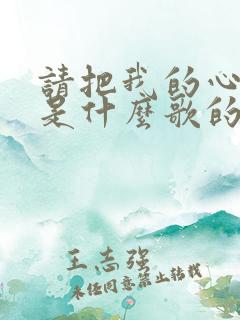 請把我的心
是什麼歌的
王志强
未经同意禁止转载